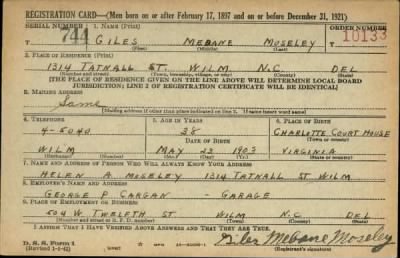 REGISTRATION CARD—(Men born on or after February 17, 1897 and on or before December 31, 1921)
SERIAL NUMBER 1. NAME (Print) ORDER NUMBER
744 GILES MEBANE MOSELEY 10133
2. PLACE OF RESIDENCE (Print)
1314 TATNALL ST. WILM N.C. DEL
(Number and street) (Town, township, village, or city) (County) (State)
[THE PLACE OF RESIDENCE GIVEN ON THE LINE ABOVE WILL DETERMINE LOCAL BOARD
JURISDICTION; LINE 2 OF REGISTRATION CERTIFICATE WILL BE IDENTICAL]
3. MAILING ADDRESS
Same
[Mailing address if other than place indicated on line 2. If same insert word same]
4. TELEPHONE 5. AGE IN YEARS 6. PLACE OF BIRTH
4-5040 38 CHARLOTTE COURT HOUSE
DATE OF BIRTH (Town or county)
WILM MAY 23 1903 VIRGINIA
(Exchange) (Number) (Mo.) (Day) (Yr.) (State or country)
7. NAME AND ADDRESS OF PERSON WHO WILL ALWAYS KNOW YOUR ADDRESS
HELEN A MOSELEY 1314 TATNALL ST WILM
8. EMPLOYER'S NAME AND ADDRESS
GEORGE P CARGAN - GARAGE
9. PLACE OF EMPLOYMENT OR BUSINESS
504 W TWELFTH ST WILM N.C DEL
(Number and street or R. F. D. number) (Town) (County) (State)
I AFFIRM THAT I HAVE VERIFIED ABOVE ANSWERS AND THAT THEY ARE TRUE.
D. S. S. Form 1
(Revised 1-1-42) (over)
Giles Mebane Moseley
(Registrant's signature)